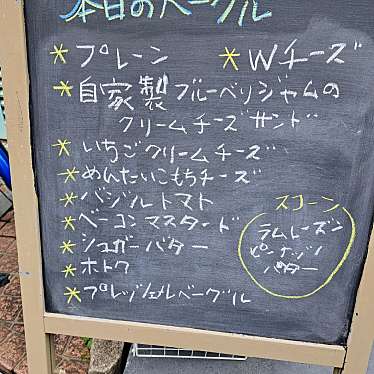 本日のベーグル
* プレーン * Wチーズ
* 自家製ブルーベリジャムの
クリームチーズサンド
* いちごクリームチーズ
* めんたいこもちチーズ
* バジルトマト
* ベーコンマスタード
* シュガーバター
* ホトク
* プレッツェルベーグル
スコーン
ラムレーズン
ピーナッツ
バター